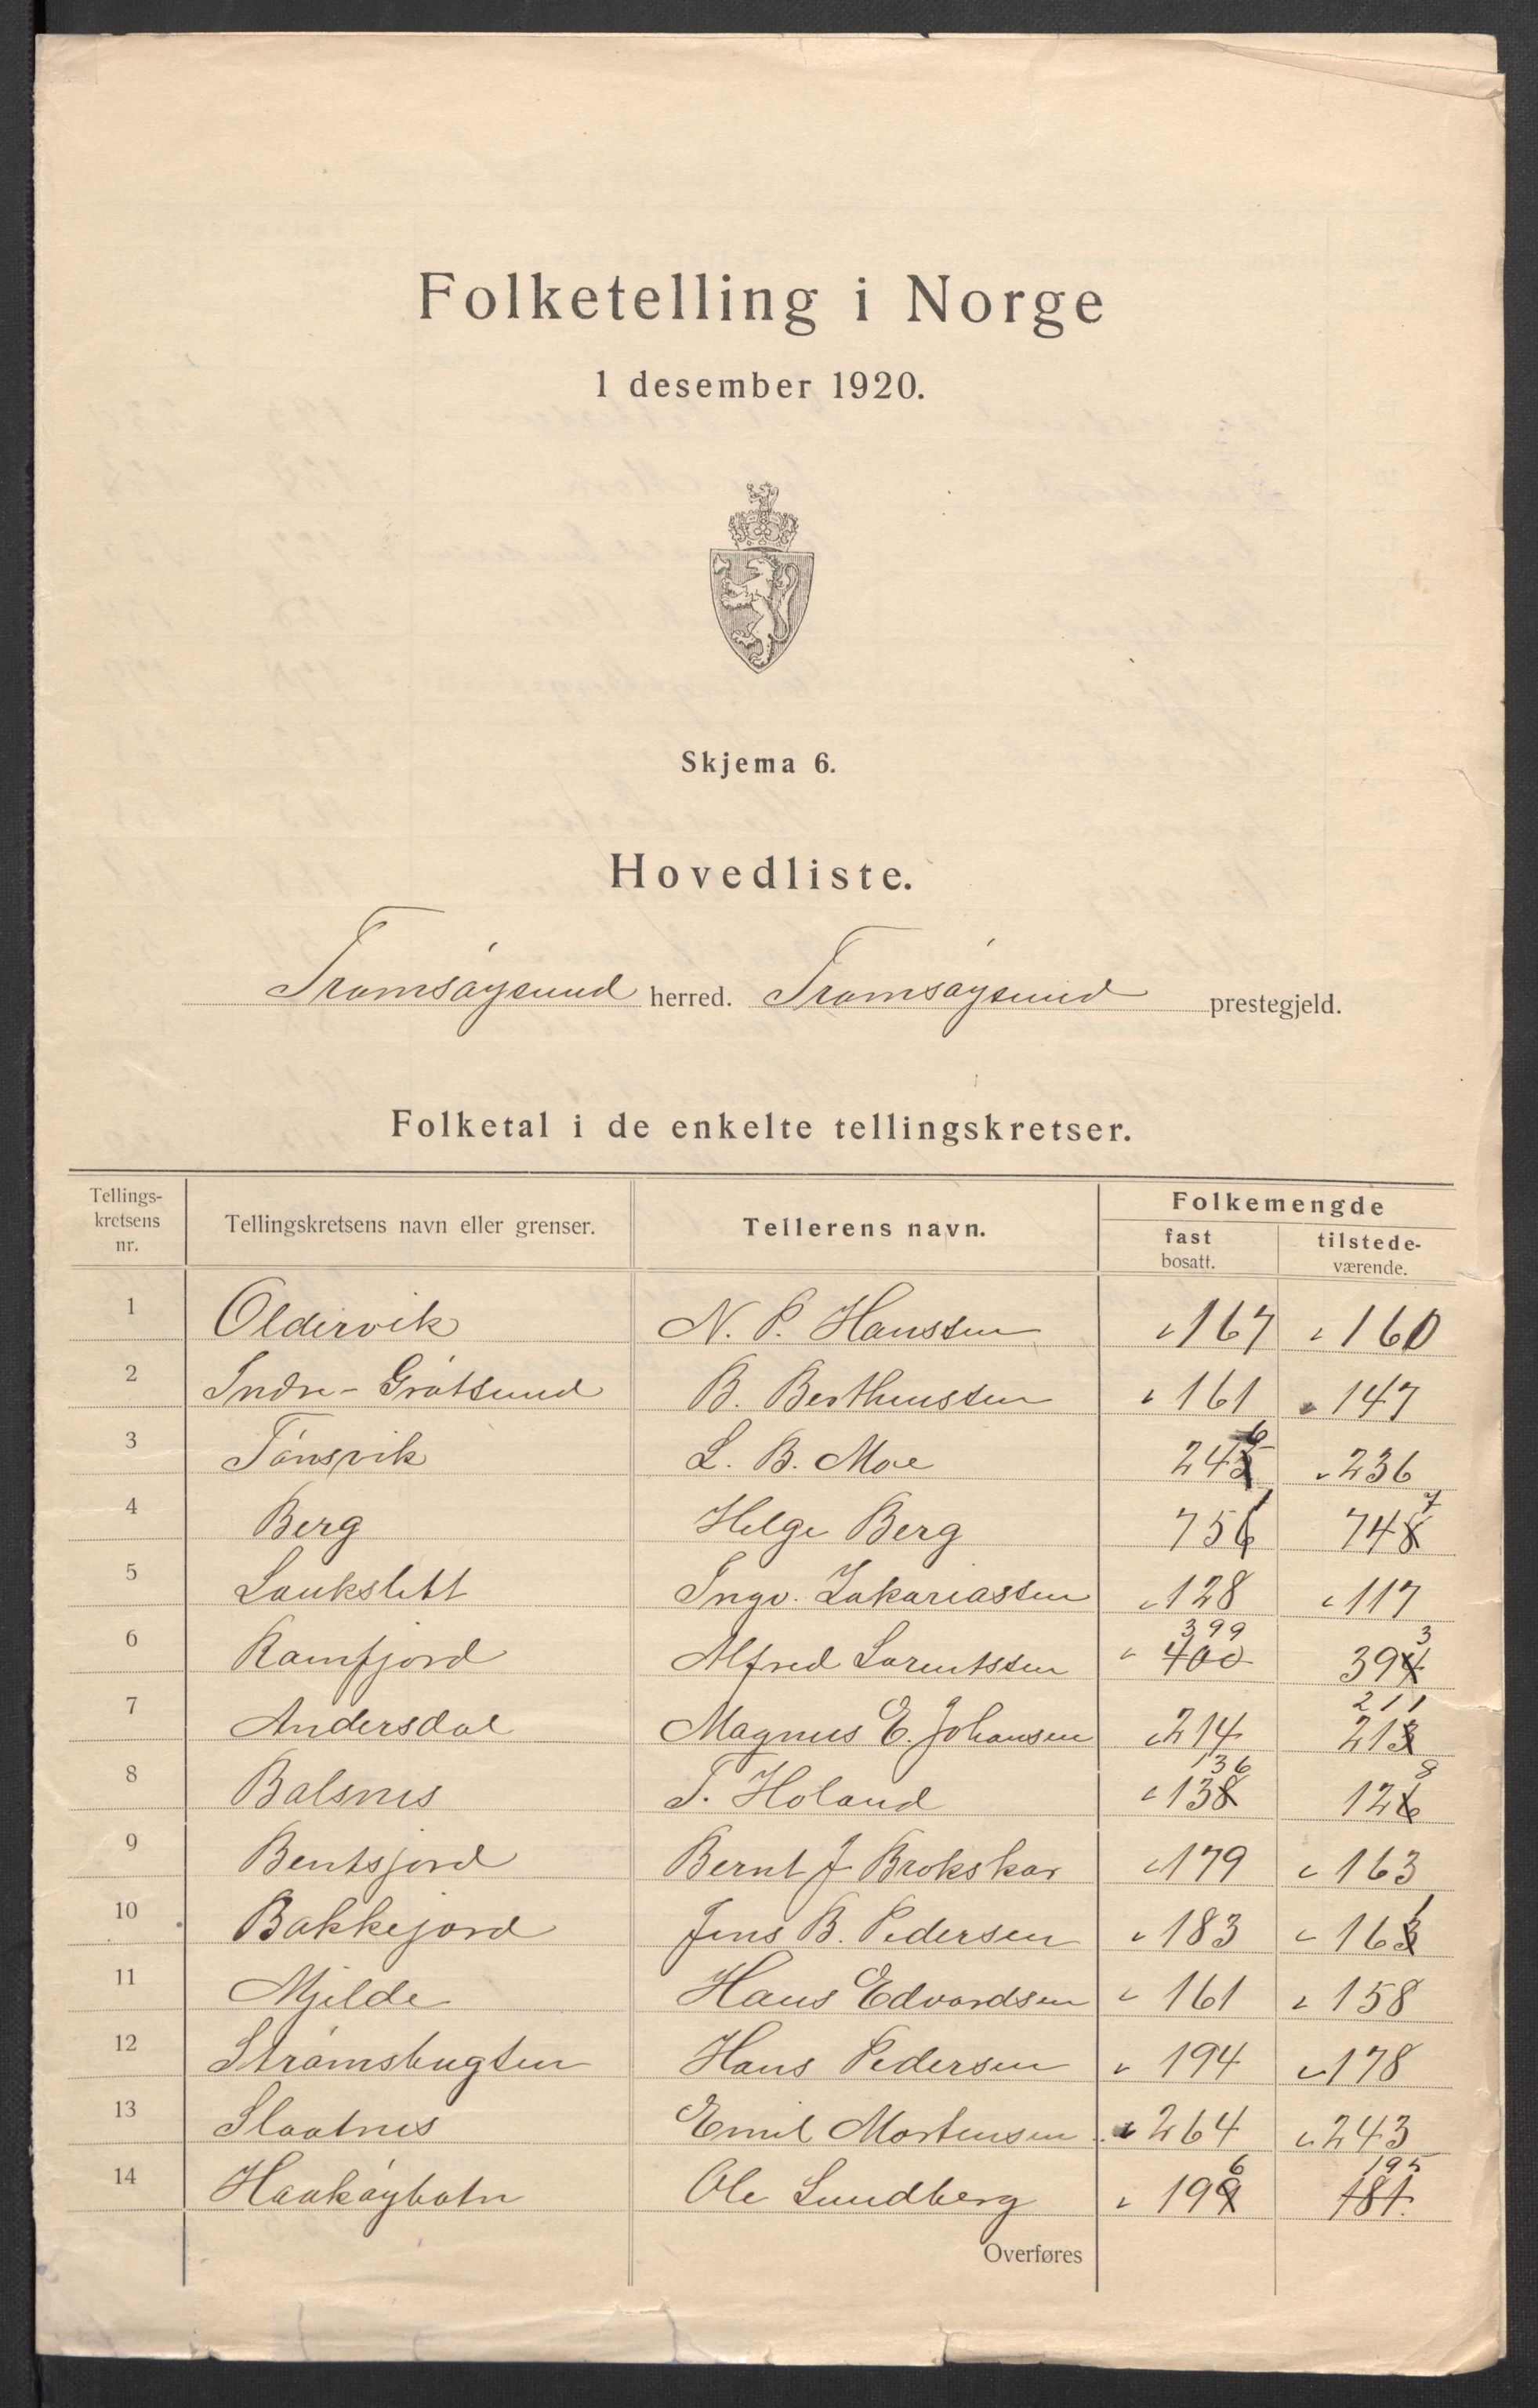 Folketelling i Norge
1 desember 1920.
Skjema 6.
Hovedliste.
Tromsøysund herred. Tromsøysund prestegjeld.
Folketal i de enkelte tellingskretser.
Tellings-kretsens nr. Tellingskretsens navn eller grenser. Tellerens navn. Folkemengde fast bosatt. tilstede-værende.
1 Oldervik N. P. Hanssen 167 160
2 Indre-Grøtsund B. Berthinssen 161 147
3 Tønsvik L. B. Moe 6 245 236
4 Berg Helge Berg 1 756 7 748
5 Laukslett Ingv. Zakariassen 128 117
6 Ramfjord Alfred Lorentssen 399 400 3 394
7 Andersdal Magnus E. Johansen 214 211 213
8 Balsnes T. Holand 136 138 8 126
9 Bentsjord Bernt J. Brokskar 179 163
10 Bakkejord Jens B. Pedersen 183 1 163
11 Mjelde Hans Edvardsen 161 158
12 Strømsbugten Hans Pedersen 194 178
13 Slaatnes Emil Mortensen 264 243
14 Haakøybotn Ole Lundberg 6 199 195 181.
Overføres